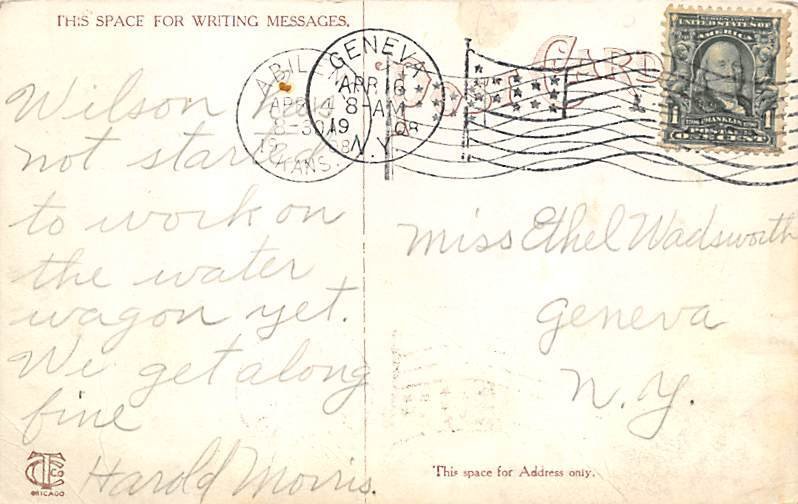 THIS SPACE FOR WRITING MESSAGES.
Wilson has
not started
to work on
the water
wagon yet.
We get along
fine
Harold Morris.
CTCo
CHICAGO
ABILENE
APR 14
8-30A
1908
KANS.
GENEVA
APR 16
8-AM
1908
N.Y.
POST CARD
SERIES 1902
UNITED STATES OF
AMERICA
1 FRANKLIN 1
POSTAGE
ONE CENT
Miss Ethel Wadsworth
Geneva
N.Y.
This space for Address only.